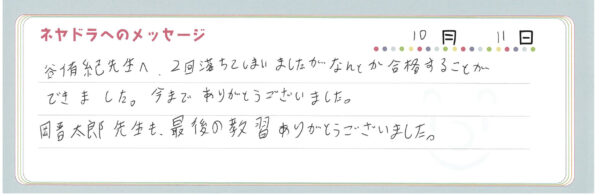 ネヤドラへのメッセージ
10月 11日
谷侑紀先生へ、2回落ちてしまいましたがなんとか合格することが
できました。今までありがとうございました。
岡晋太郎先生も、最後の教習ありがとうございました。